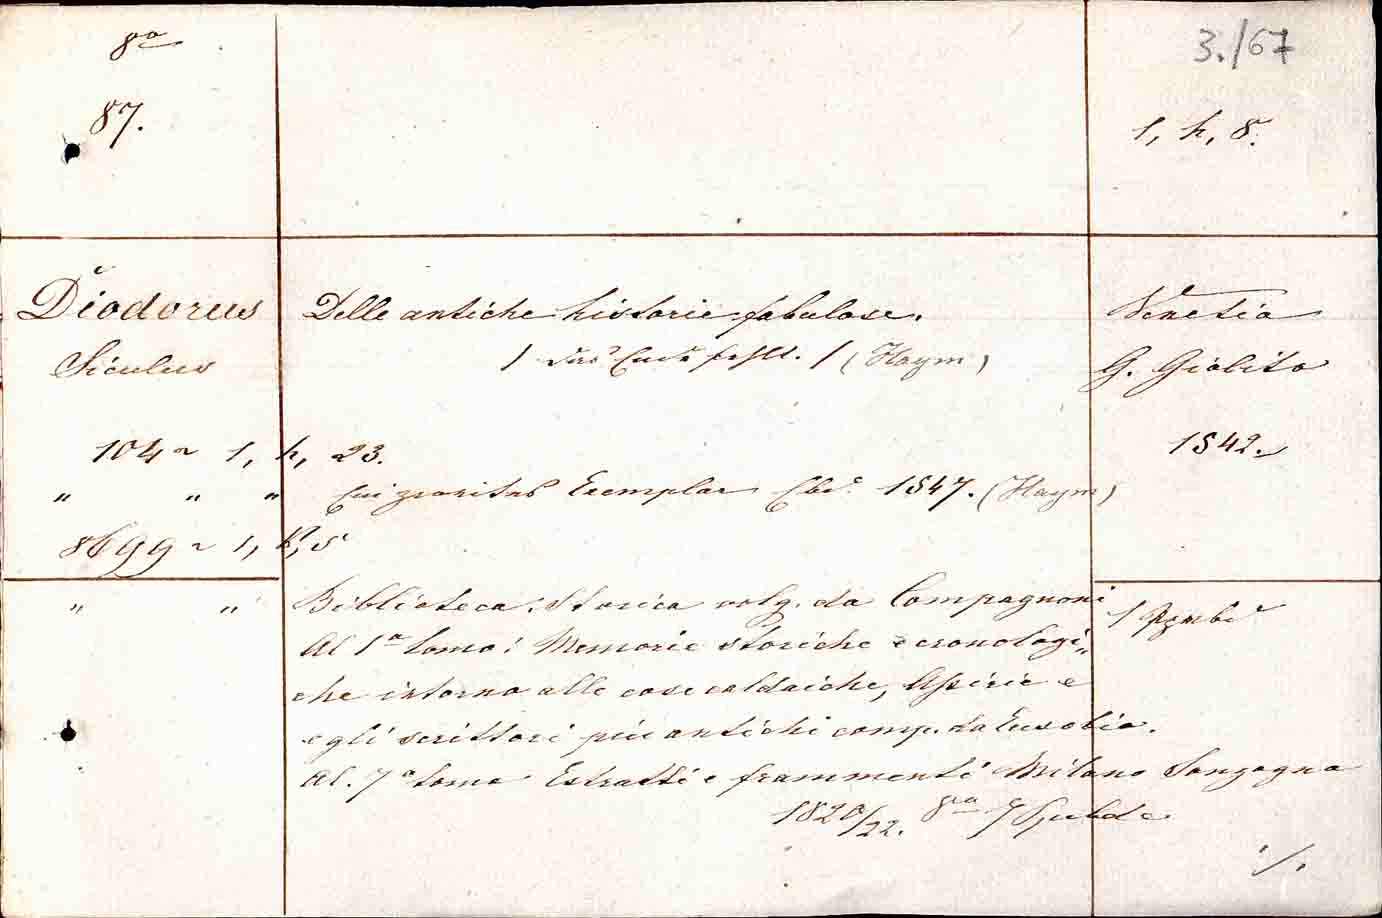 8º
3./67
87.
1, h, 8.
Diodorus
Delle antiche historie fabulose.
Venetia
Siculus
/ das Ende fehlt. / (Haym)
G. Giolito
104 ~ 1, h, 23.
1542.
" " " Ein zweites Exemplar Ebd. 1547. (Haym)
8699 ~ 1, h, 5
" " Biblioteca storica volg. da Compagnoni
Al 1º tomo: Memorie storiche e cronologi„
che intorno alle cose caldaiche, Assirie e
egli scrittori più antichi comp. da Eusebio.
Al. 7º tomo Estratti e frammenti Milano Sonzogno
1820/22. 8vo 7
./.